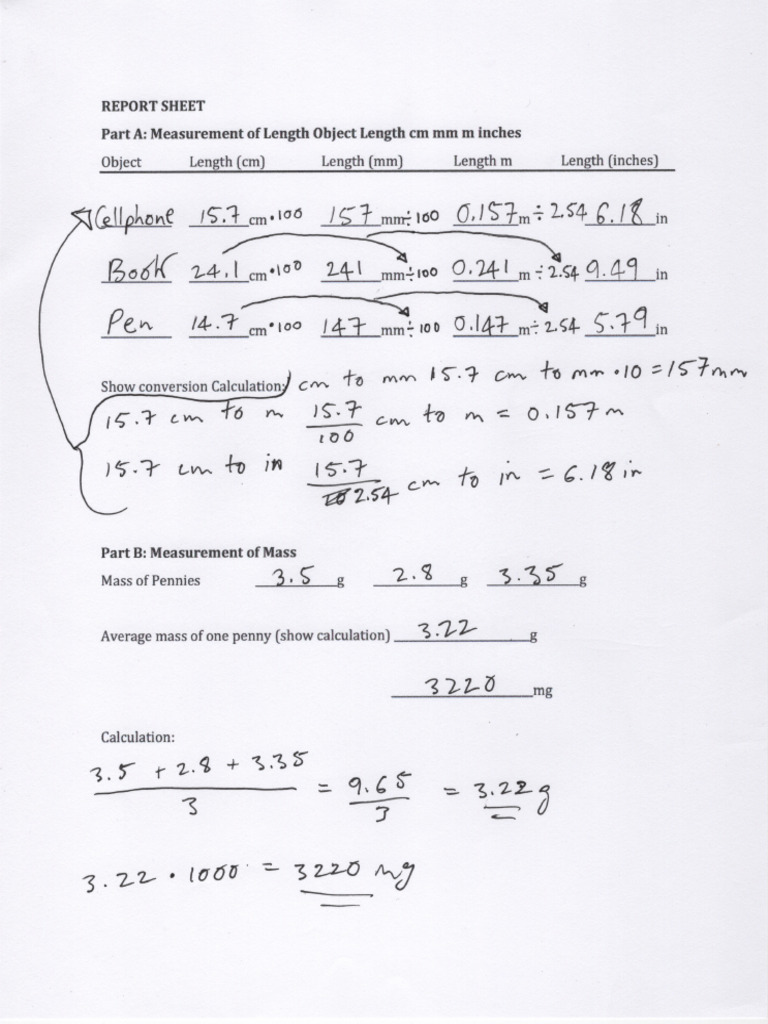 REPORT SHEET
Part A: Measurement of Length Object Length cm mm m inches
Object Length (cm) Length (mm) Length m Length (inches)
Cellphone 15.7 cm •100 157 mm ÷100 0.157 m ÷ 2.54 6.18 in
Book 24.1 cm •100 241 mm ÷100 0.241 m ÷2.54 9.49 in
Pen 14.7 cm •100 147 mm ÷100 0.147 m ÷ 2.54 5.79 in
Show conversion Calculation: cm to mm 15.7 cm to mm •10 = 157 mm
15.7 cm to m 15.7/100 cm to m = 0.157 m
15.7 cm to in 15.7/2.54 cm to in = 6.18 in
Part B: Measurement of Mass
Mass of Pennies 3.5 g 2.8 g 3.35 g
Average mass of one penny (show calculation) 3.22 g
3220 mg
Calculation:
3.5 + 2.8 + 3.35 / 3 = 9.65 / 3 = 3.22 g
3.22 • 1000 = 3220 mg